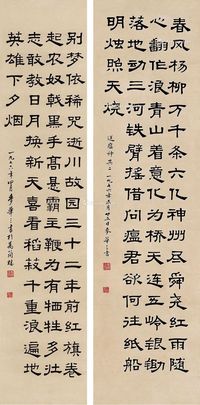 春风杨柳万千条六亿神州尽舜尧红雨随
心翻作浪青山着意化为桥天连五岭银锄
落地动三河铁臂摇借问瘟君欲何往纸船
明烛照天烧
送瘟神其二一九七六年
别梦依稀咒逝川故园三十二年前红旗卷
起农奴戟黑手高悬霸主鞭为有牺牲多壮
志敢教日月换新天喜看稻菽千重浪遍地
英雄下夕烟
一九七六年